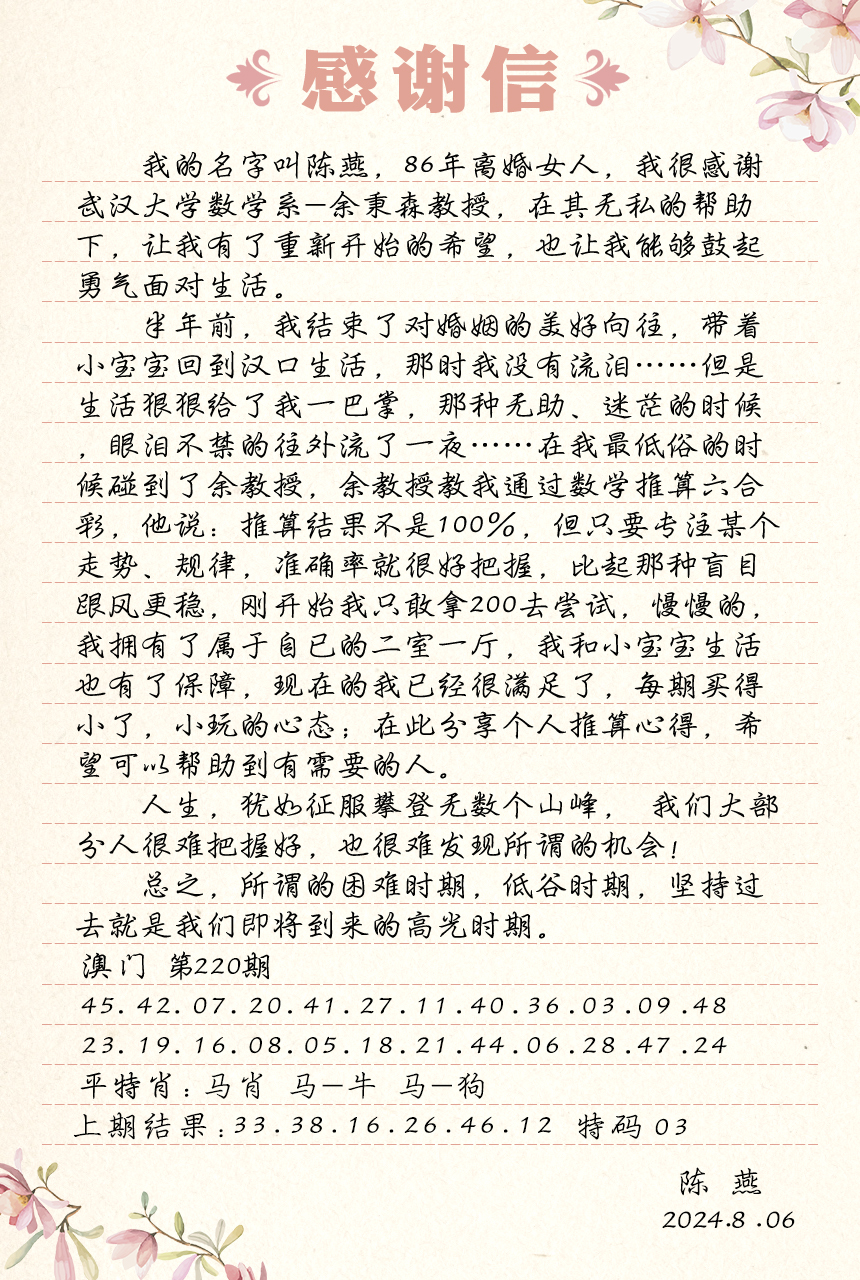 感谢信
我的名字叫陈燕，86年离婚女人，我很感谢
武汉大学数学系—余秉森教授，在其无私的帮助
下，让我有了重新开始的希望，也让我能够鼓起
勇气面对生活。
半年前，我结束了对婚姻的美好向往，带着
小宝宝回到汉口生活，那时我没有流泪……但是
生活狠狠给了我一巴掌，那种无助、迷茫的时候
，眼泪不禁的往外流了一夜……在我最低俗的时
候碰到了余教授，余教授教我通过数学推算六合
彩，他说：推算结果不是100%，但只要专注某个
走势、规律，准确率就很好把握，比起那种盲目
跟风更稳，刚开始我只敢拿200去尝试，慢慢的，
我拥有了属于自已的二室一厅，我和小宝宝生活
也有了保障，现在的我已经很满足了，每期买得
小了，小玩的心态；在此分享个人推算心得，希
望可以帮助到有需要的人。
人生，犹如征服攀登无数个山峰， 我们大部
分人很难把握好，也很难发现所谓的机会！
总之，所谓的困难时期，低谷时期，坚持过
去就是我们即将到来的高光时期。
澳门 第220期
45.42.07.20.41.27.11.40.36.03.09.48
23.19.16.08.05.18.21.44.06.28.47.24
平特肖：马肖 马—牛 马—狗
上期结果：33.38.16.26.46.12 特码 03
陈 燕
2024.8.06